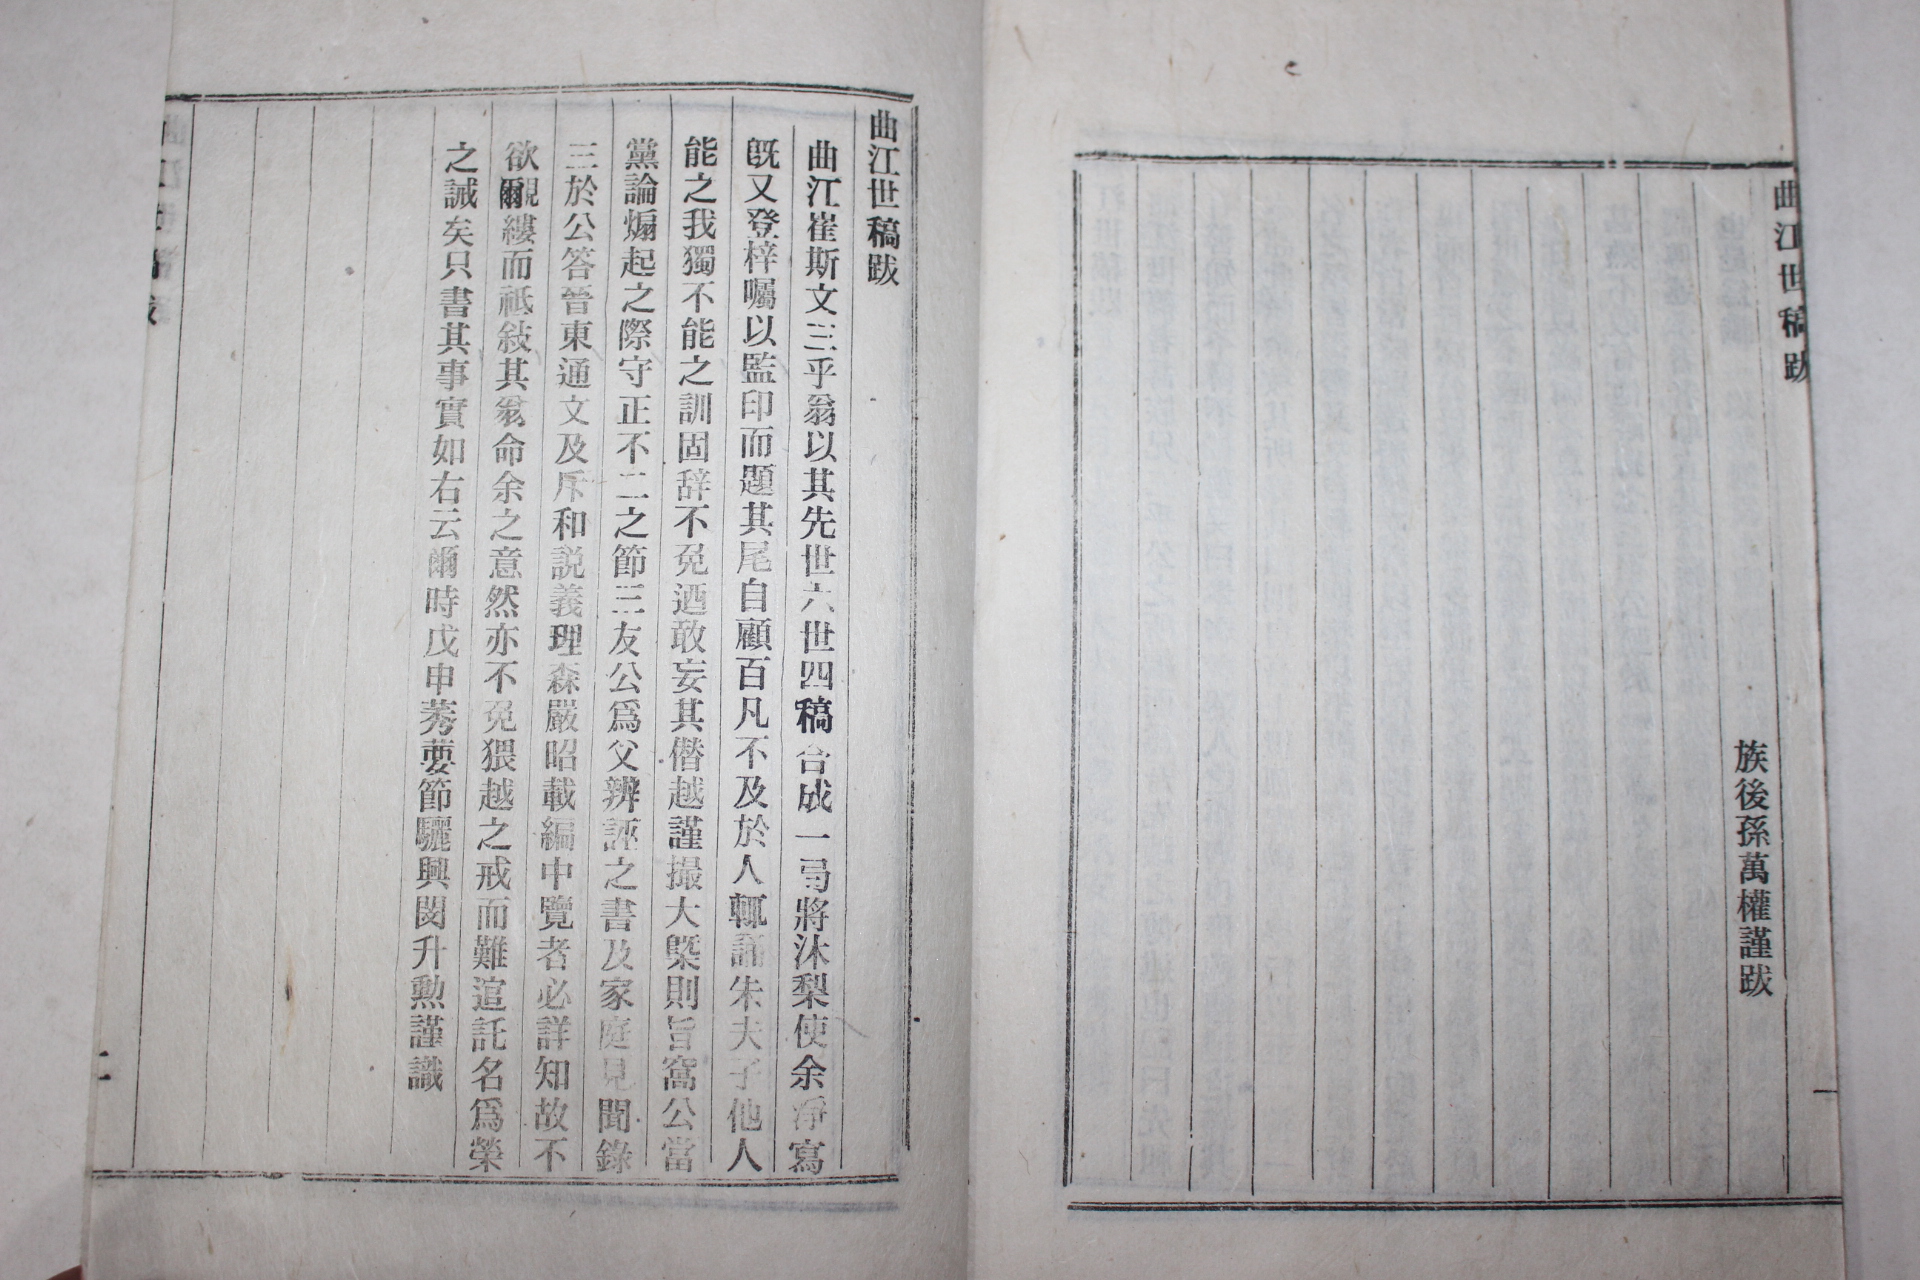 曲江世稿跋
族後孫萬權謹跋
曲江世稿跋
曲江崔斯文三乎翁以其先世六世四稿合成一弓將沐梨使余淨寫
旣又登梓囑以監印而題其尾自顧百凡不及於人輒誦朱夫子他人
能之我獨不能之訓固辞不免迺敢妄其僭越謹撮大槩則旨窩公當
黨論煽起之際守正不二之節三友公爲父辨誣之書及家庭見聞錄
三於公答晉東通文及斥和説義理森嚴昭載編中覽者必詳知故不
欲覼縷而祗敍其翁命余之意然亦不免猥越之戒而難逭託名爲榮
之誠矣只書其事實如右云爾時戊申莠葽節驪興閔升勲謹識
二